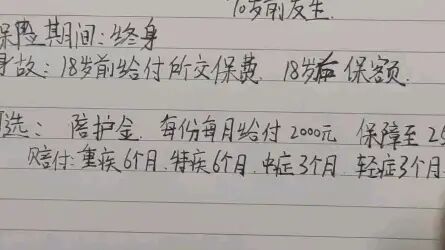 10岁前发生.
保险期间:终身
身故:18岁前给付所交保费. 18岁后保额.
选: 陪护金. 每份每月给付2000元 保障至25
赔付:重疾6个月.特疾6个月.中症3个月.轻症3个月